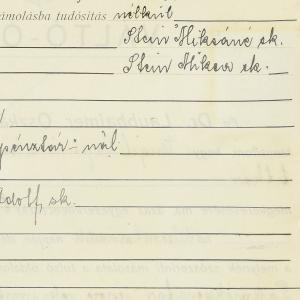 ámolásba tudósítás nélkül
Stein Miksáné sk.
Stein Miksa sk.
pénztár-nál
Adolf, sk.